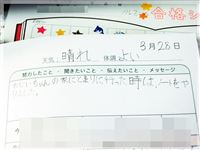 合格シ
3月28日
天気: 晴れ 体調 よい
努力したこと ・ 聞きたいこと ・ 伝えたいこと ・ メッセージ
おじいちゃんの家にとまりに行った時は、ノートをや
りました。